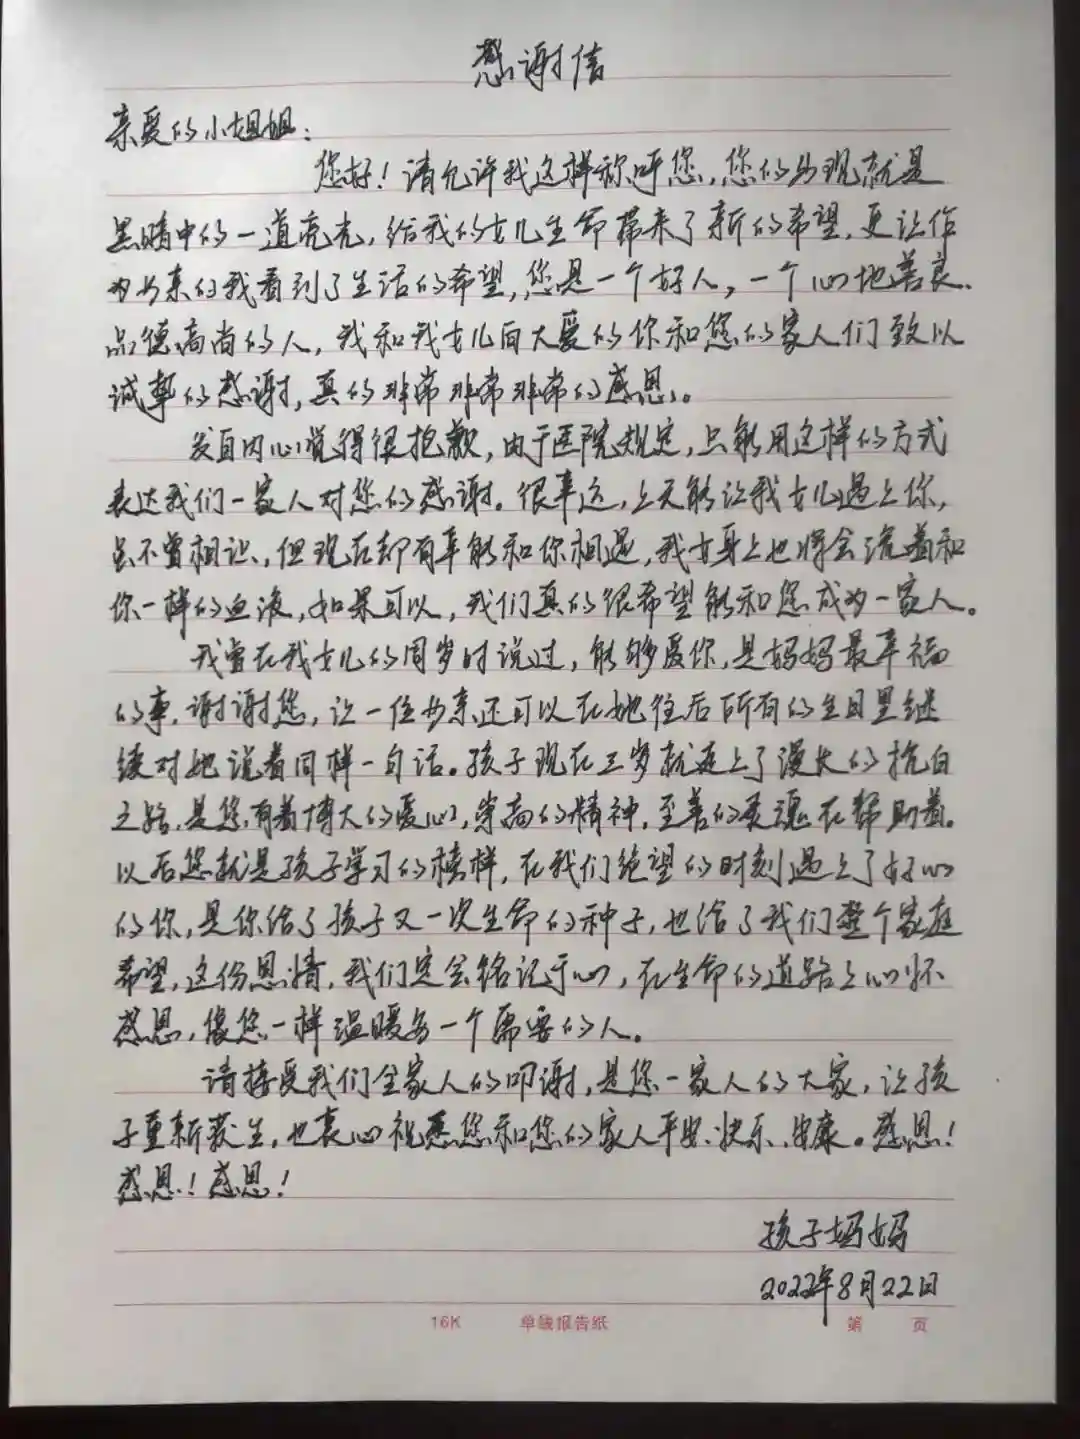 感谢信
亲爱的小姐姐：
您好！请允许我这样称呼您，您的出现就是
黑暗中的一道亮光，给我的女儿生命带来了新的希望，更让作
为母亲的我看到了生活的希望，您是一个好人，一个心地善良、
品德高尚的人，我和我女儿向大爱的你和您的家人们致以
诚挚的感谢，真的非常非常非常的感恩。
发自内心觉得很抱歉，由于医院规定，只能用这样的方式
表达我们一家人对您的感谢。很幸运，上天能让我女儿遇上你，
虽不曾相识，但现在却有幸能和你相遇，我女身上也将会流着和
你一样的血液，如果可以，我们真的很希望能和您成为一家人。
我曾在我女儿的周岁时说过，能够爱你，是妈妈最幸福
的事，谢谢您，让一位母亲还可以在她往后所有的生日里继
续对她说着同样一句话。孩子现在三岁就走上了漫长的抗白
之路，是您，有着博大的爱心，崇高的精神，至善的灵魂在帮助着。
以后您就是孩子学习的榜样，在我们绝望的时刻遇上了好心
的你，是你给了孩子又一次生命的种子，也给了我们整个家庭
希望，这份恩情，我们定会铭记于心，在生命的道路上心怀
感恩，像您一样温暖每一个需要的人。
请接受我们全家人的叩谢，是您一家人的大家，让孩
子重新获生，也衷心祝愿您和您的家人平安、快乐、安康。感恩！
感恩！感恩！
孩子妈妈
2022年8月22日
16K 单线报告纸 第 页